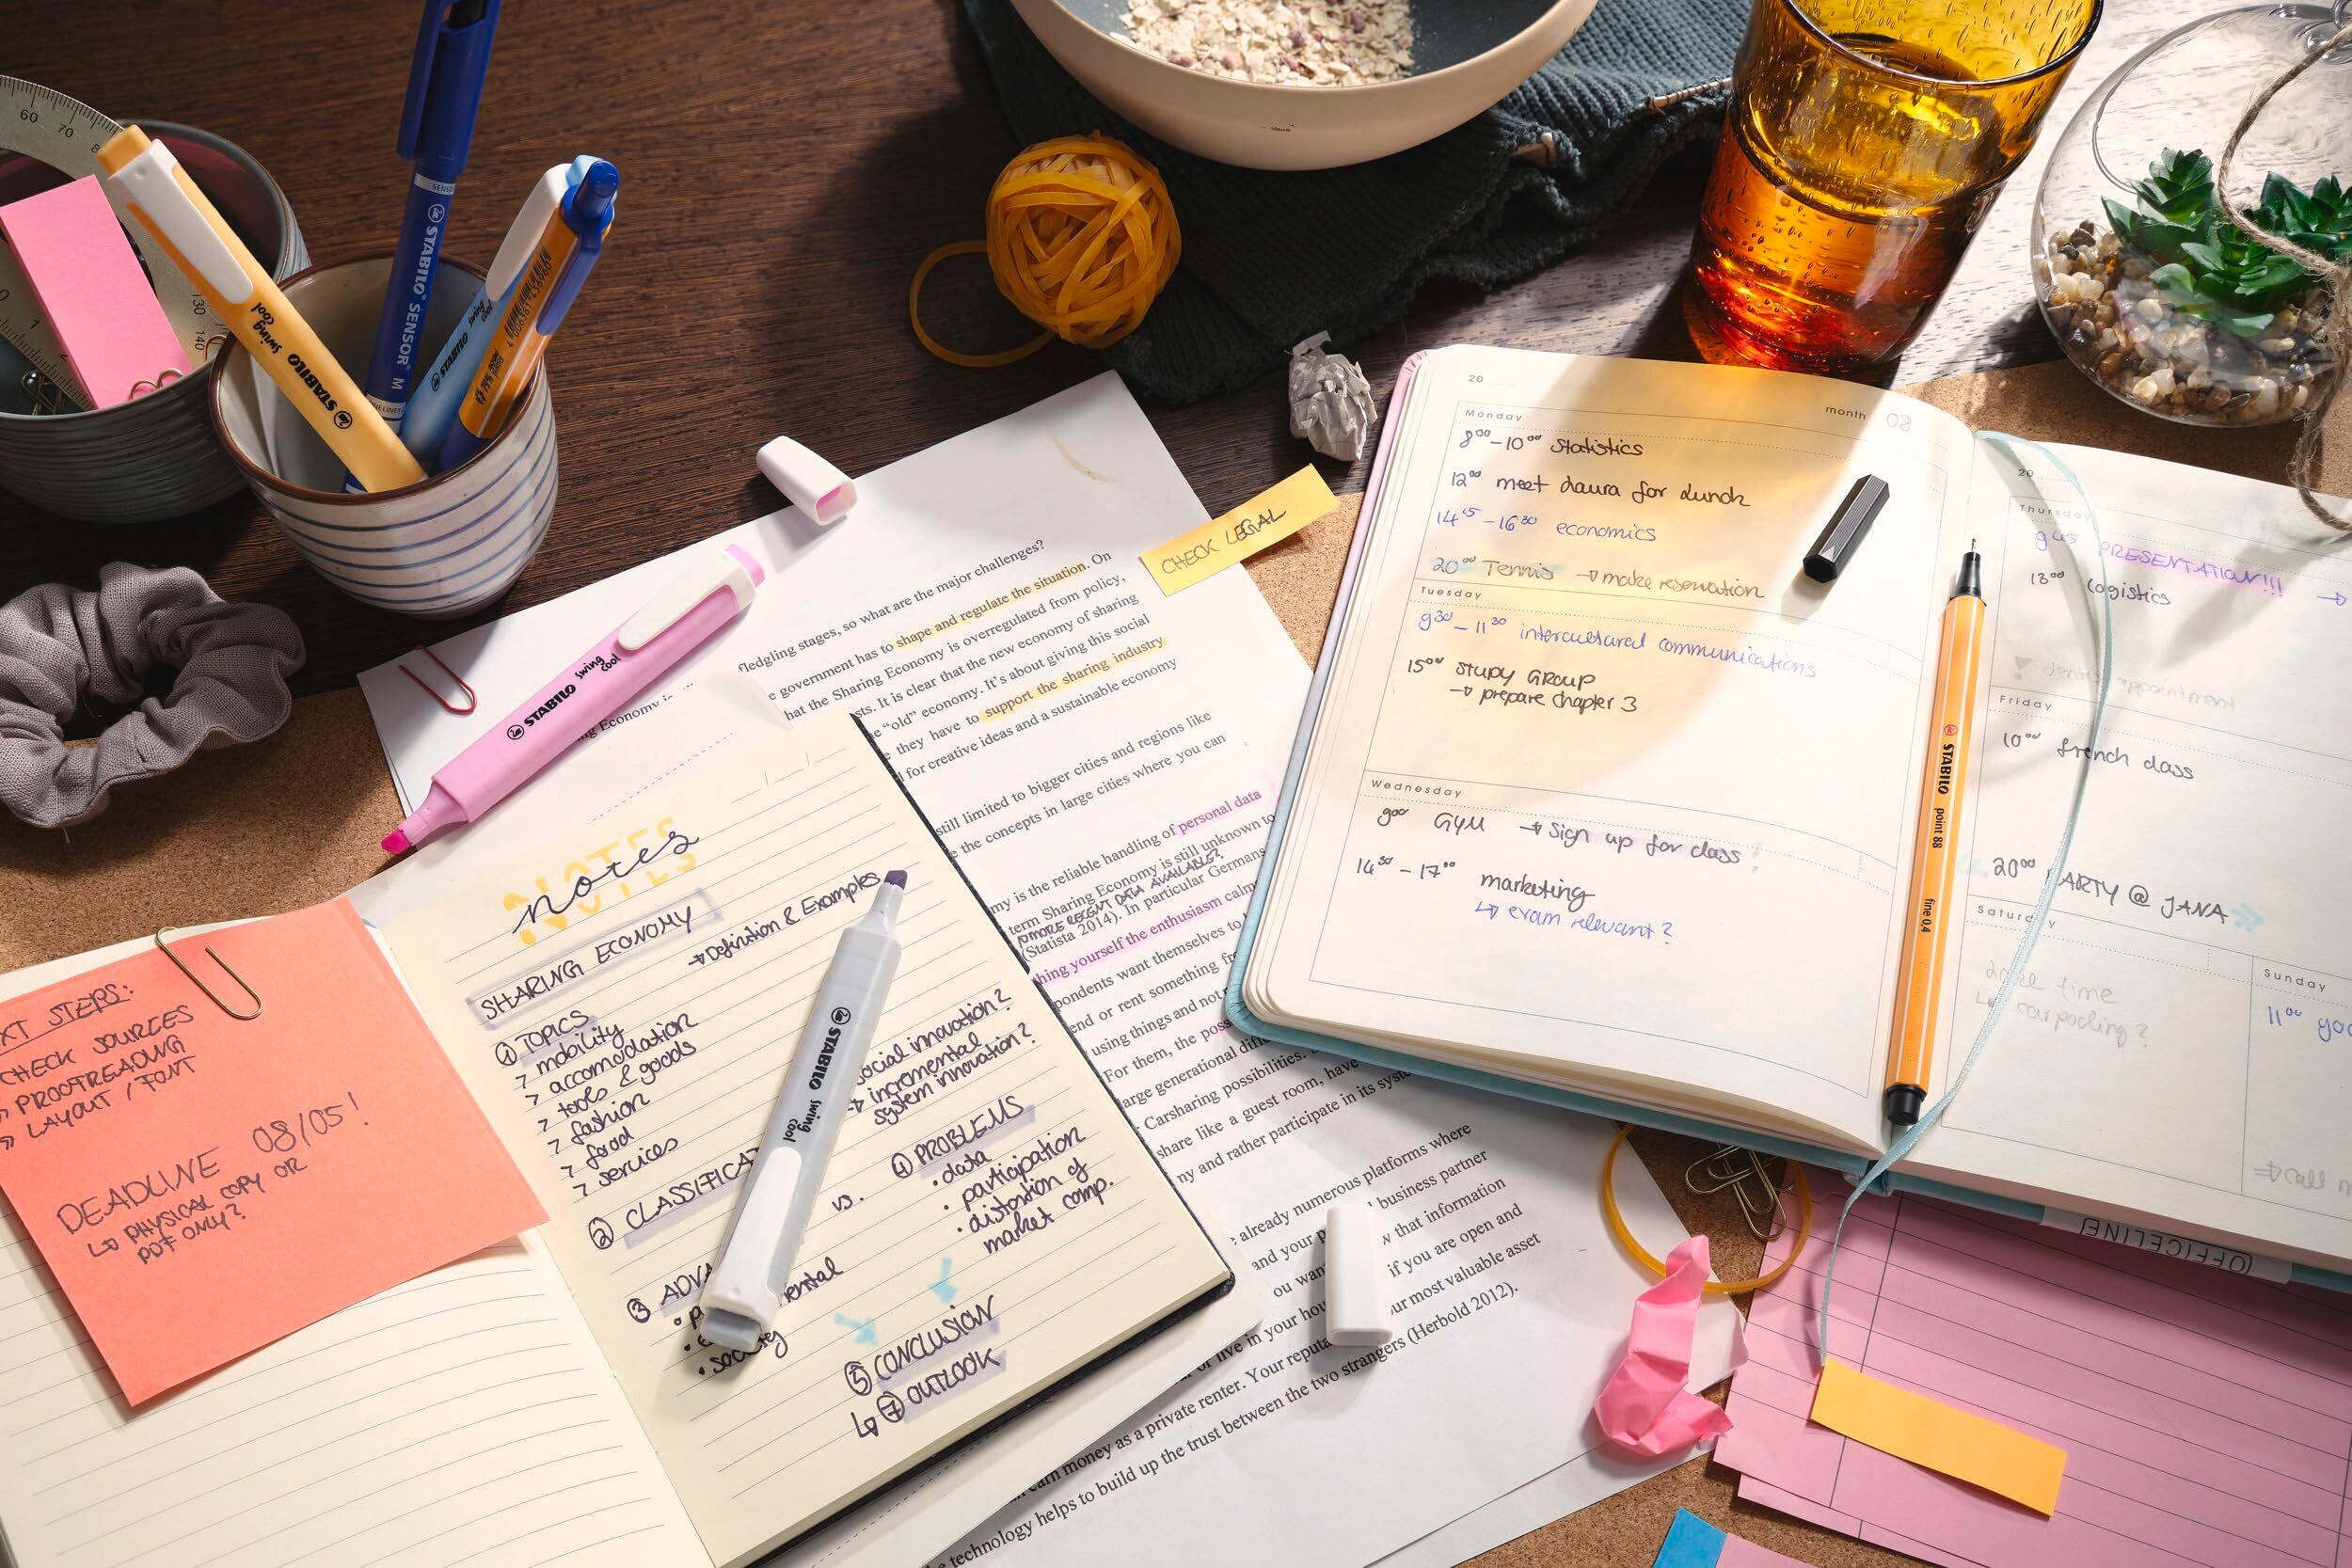 60
70
130
140
STABILO swing cool
STABILO SENSOR M
STABILO swing
4006381436960
STABILO swing cool
fledgling stages, so what are the major challenges?
government has to shape and regulate the situation. On
hat the Sharing Economy is overregulated from policy,
sts. It is clear that the new economy of sharing
"old" economy. It's about giving this social
they have to support the sharing industry
for creative ideas and a sustainable economy
still limited to bigger cities and regions like
the concepts in large cities where you can
my is the reliable handling of personal data
term Sharing Economy is still unknown to
MORE RECENT DATA AVAILABLE?
(Statista 2014). In particular Germans
thing yourself the enthusiasm calm
pondents want themselves to
end or rent something
using things and not
For them, the
large generational
Carsharing possibilities.
share like a guest room, have
ny and rather participate in its
already numerous platforms where
and your business partner
ou that information
if you are open and
or live in your most valuable asset
earn money as a private renter. Your
technology helps to build up the trust between the two strangers (Herbold 2012).
CHECK LEGAL
NOTES
notes
SHARING ECONOMY
→ Definition & Examples
① TOPICS
> mobility
> accomodation
> tools & goods
> fashion
> food
> services
② CLASSIFICAT
social innovation?
→ incremental
system innovation?
vs.
③ ADVA
ental
• society
④ PROBLEMS
• data
• participation
• distortion of
market comp.
⑤ CONCLUSION
↳ ⑦ OUTLOOK
STABILO swing cool
XT STEPS:
CHECK SOURCES
» PROOFREADING
» LAYOUT / FONT
DEADLINE 08/05!
↳ PHYSICAL COPY OR
PDF ONLY?
20
month
Monday
8⁰⁰-10⁰⁰ Statistics
12⁰⁰ meet Laura for Lunch
14¹⁵-16³⁰ economics
20⁰⁰ Tennis → make reservation
Tuesday
9³⁰-11³⁰ intercultural communications
15⁰⁰ STUDY GROUP
→ prepare chapter 3
Wednesday
9⁰⁰ GYM → Sign up for class!
14³⁰-17⁰⁰ marketing
↳ exam relevant?
STABILO point 88 fine 0,4
20
Thursday
9⁴⁵ PRESENTATION!!!
13⁰⁰ Logistics
Friday
10⁰⁰ french class
20⁰⁰ PARTY @ JANA
Saturday
time
↳ carpooling?
Sunday
11⁰⁰
call
OFFICELINE